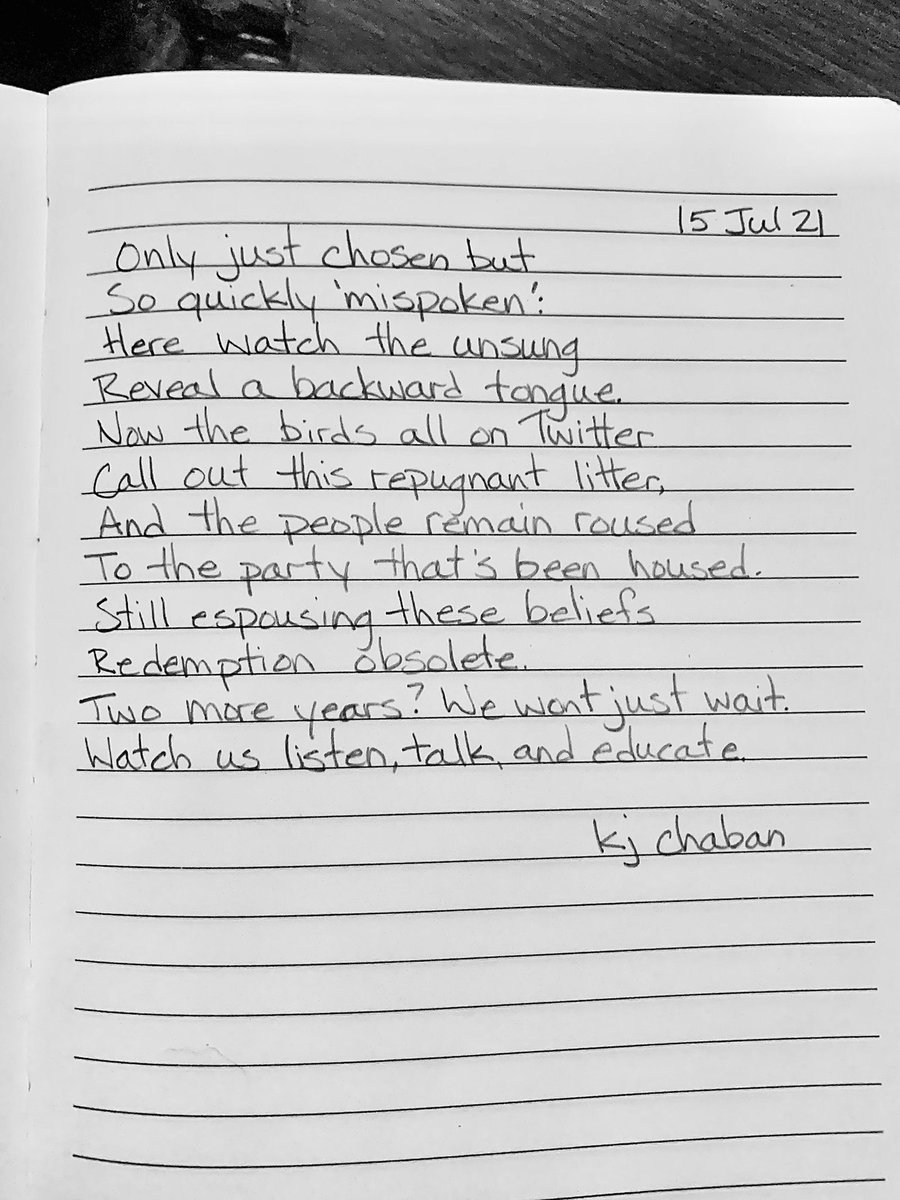 15 Jul 21
Only just chosen but
So quickly 'mispoken':
Here watch the unsung
Reveal a backward tongue.
Now the birds all on Twitter
Call out this repugnant litter,
And the people remain roused
To the party that's been housed.
Still espousing these beliefs
Redemption obsolete.
Two more years? We wont just wait.
Watch us listen, talk, and educate.
kj chaban